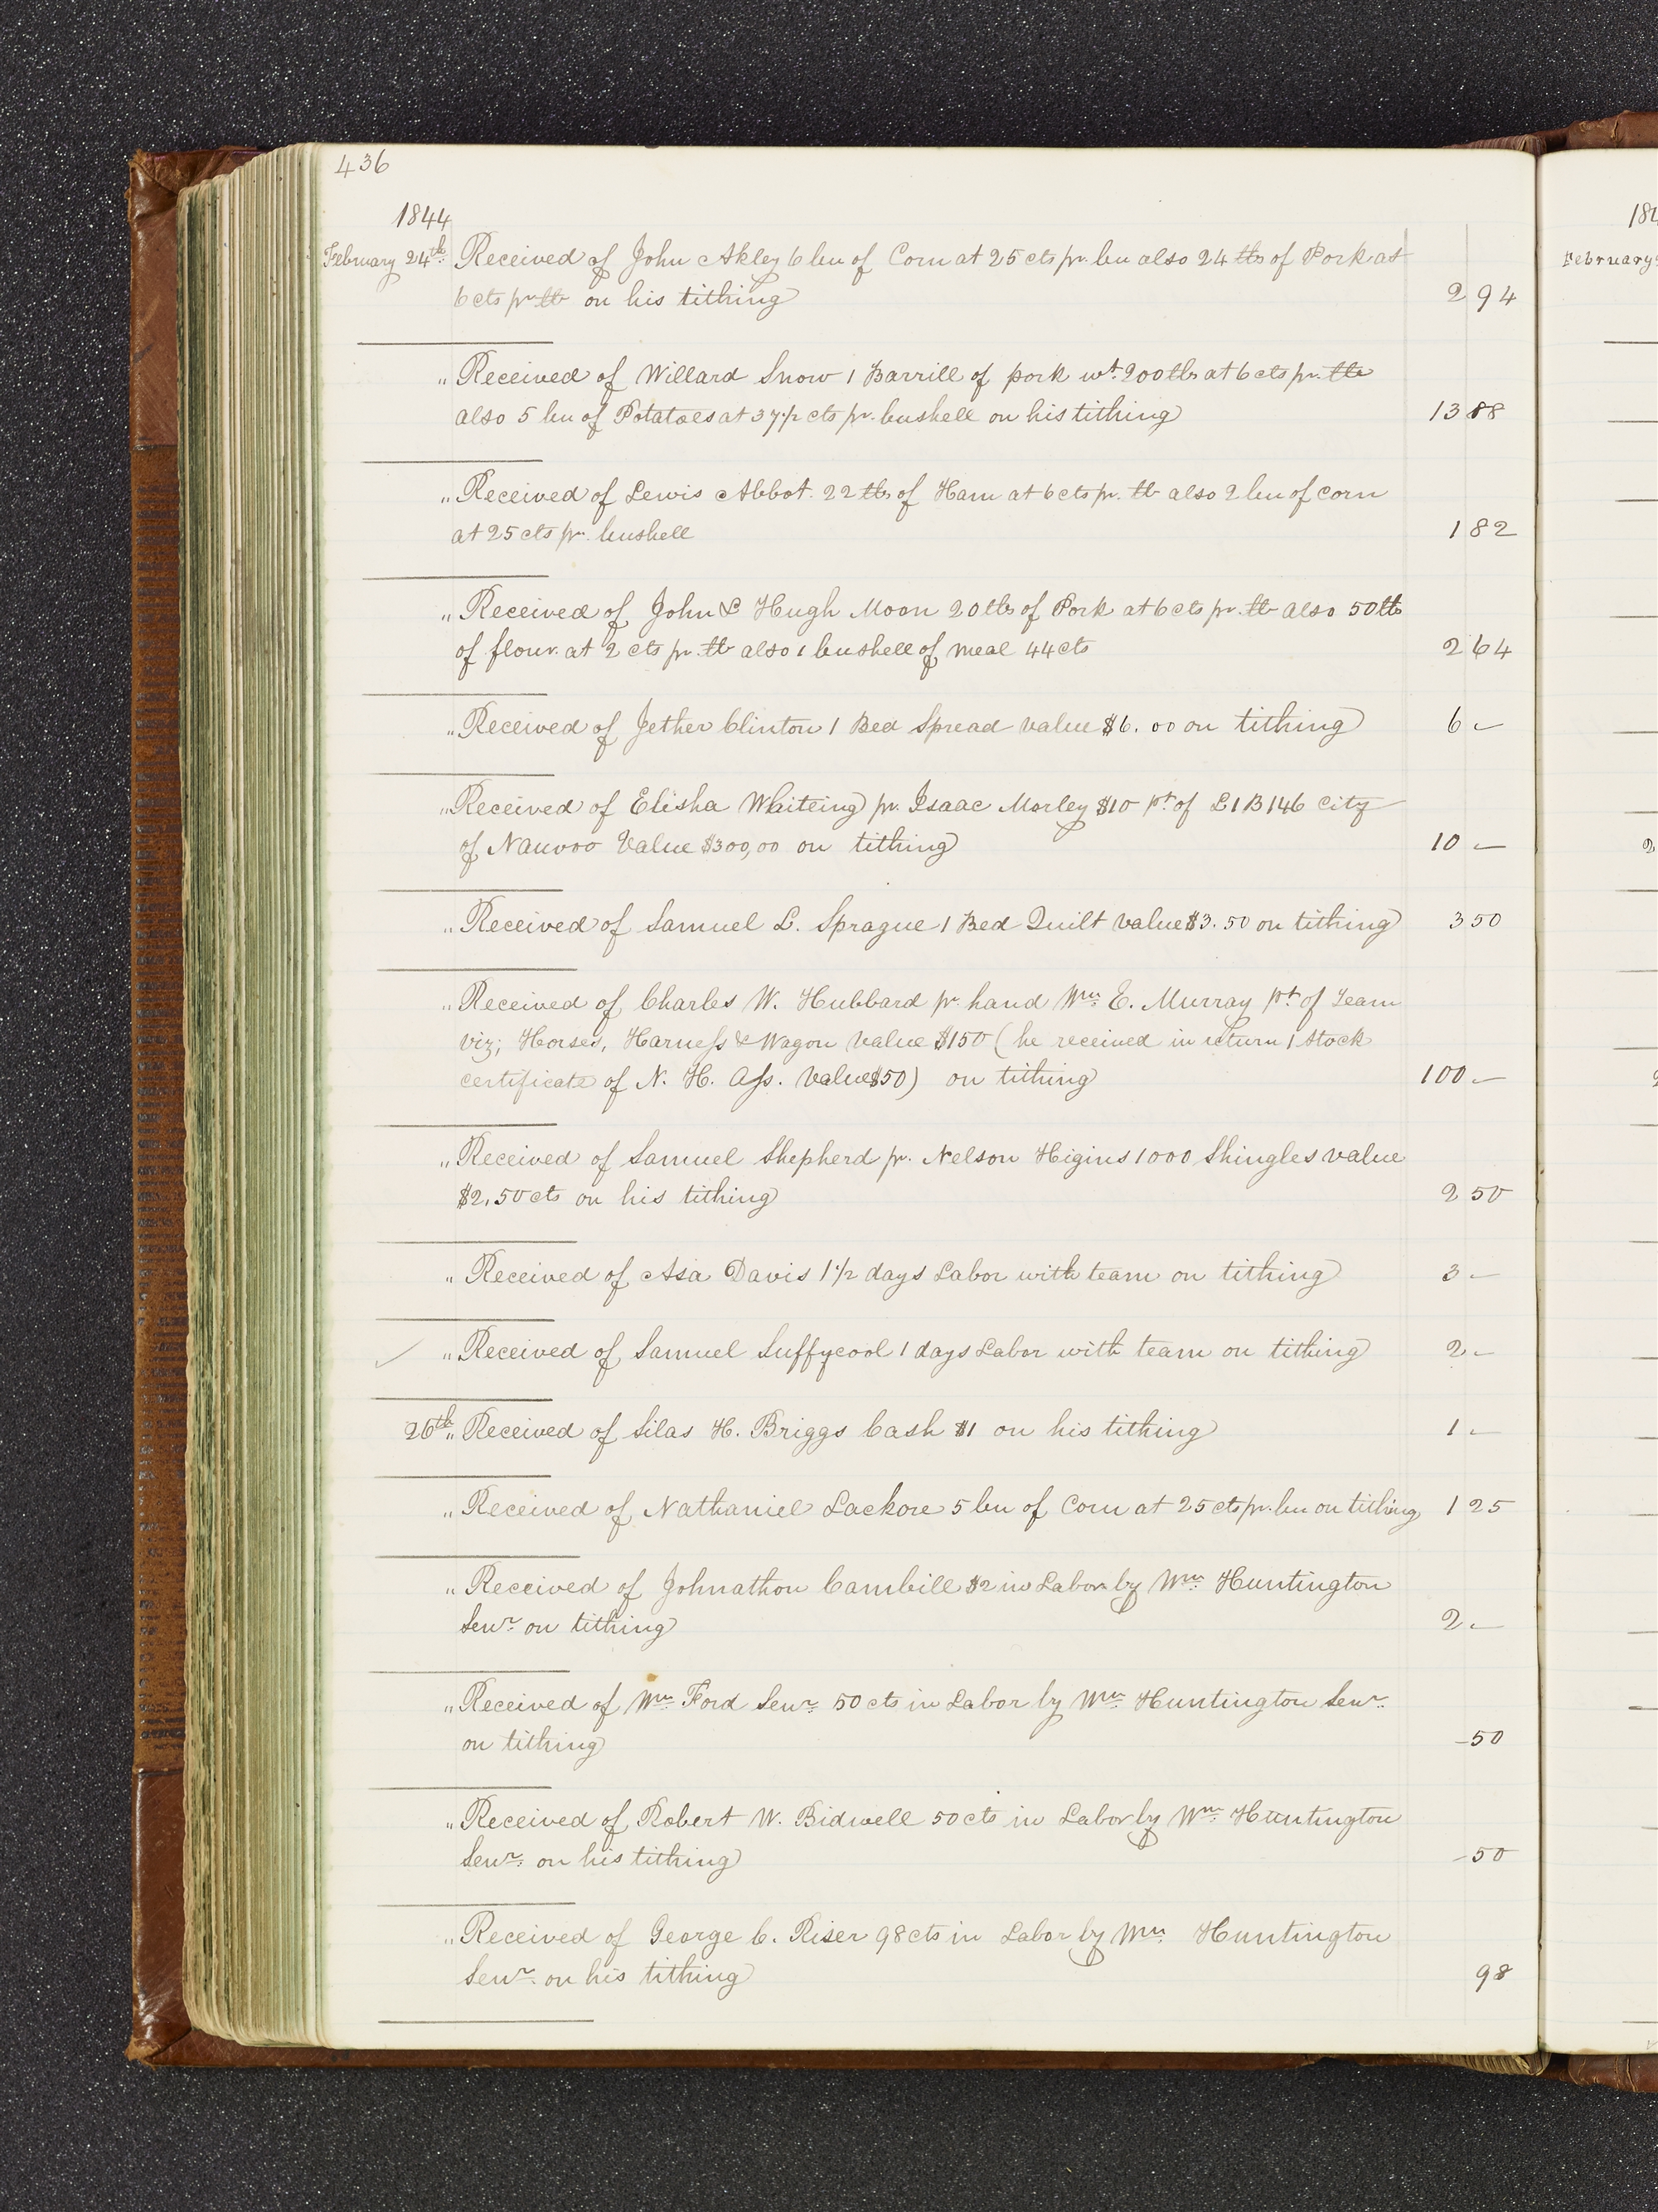 436
1844
February 24th Received of John Akley 6 bu of Corn at 25 cts pr. bu also 24 lbs of Pork at
6 cts pr lb on his tithing 2 94
" Received of Willard Snow 1 Barrill of pork wt. 200 lbs at 6 cts pr. lb
also 5 bu of Potatoes at 37 1/2 cts pr. bushell on his tithing 13 88
" Received of Lewis Abbot. 22 lbs of Ham at 6 cts pr. lb also 2 bu of corn
at 25 cts pr. bushell 1 82
" Received of John & Hugh Moon 20 lbs of Pork at 6 cts pr. lb also 50 lbs
of flour. at 2 cts pr. lb also 1 bushell of meal 44 cts 2 64
" Received of Jether Clinton 1 Bed Spread value $6.00 on tithing 6 —
" Received of Elisha Whiteing pr. Isaac Morley $10 pt. of L 1 B 146 City
of Nauvoo Value $300,00 on tithing 10 —
" Received of Samuel L. Sprague 1 Bed Quilt value $3.50 on tithing 3 50
" Received of Charles W. Hubbard pr. hand Wm. E. Murray pt. of Team
viz; Horses, Harness & Wagon value $150 (he received in return 1 stock
certificate of N. H. Ass. value $50) on tithing 100 —
" Received of Samuel Shepherd pr. Nelson Higins 1000 Shingles value
$2,50 cts on his tithing 2 50
" Received of Asa Davis 1 1/2 days Labor with team on tithing 3 —
" Received of Samuel Suffycool 1 days Labor with team on tithing 2 —
26th " Received of Silas H. Briggs Cash $1 on his tithing 1 —
" Received of Nathaniel Lackore 5 bu of Corn at 25 cts pr. bu on tithing 1 25
" Received of Johnathon Cambill $2 in Labor by Wm. Huntington
Senr. on tithing 2 —
" Received of Wm. Ford Senr. 50 cts in Labor by Wm. Huntington Senr.
on tithing — 50
" Received of Robert W. Bidwell 50 cts in Labor by Wm. Huntington
Senr. on his tithing — 50
" Received of George C. Riser 98 cts in Labor by Wm. Huntington
Senr. on his tithing 98
184
February